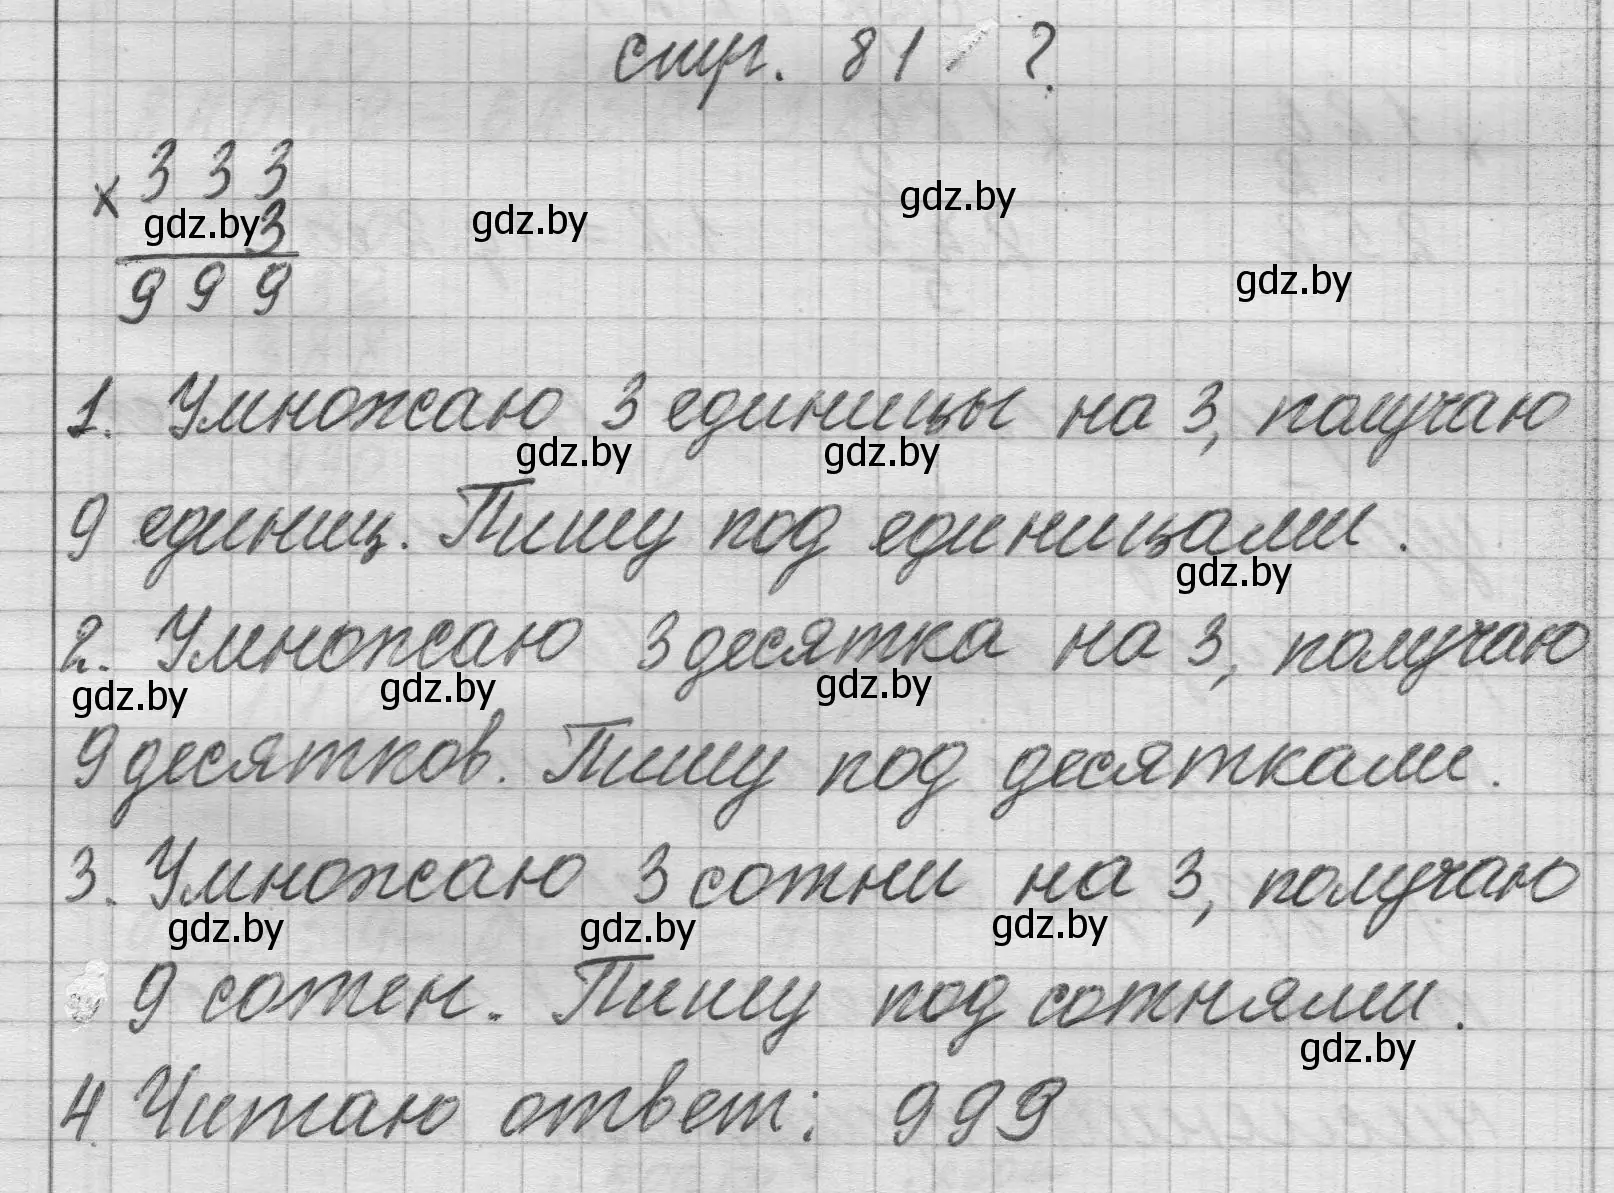 стр. 81 ?
× 333
gdz.by 3 gdz.by gdz.by
999 gdz.by
1. Умножаю 3 единицы на 3, получаю
gdz.by gdz.by
9 единиц. Пишу под единицами.
gdz.by
2. Умножаю 3 десятка на 3, получаю
gdz.by gdz.by gdz.by
9 десятков. Пишу под десятками.
3. Умножаю 3 сотни на 3, получаю
gdz.by gdz.by gdz.by
9 сотен. Пишу под сотнями.
gdz.by
4. Читаю ответ: 999